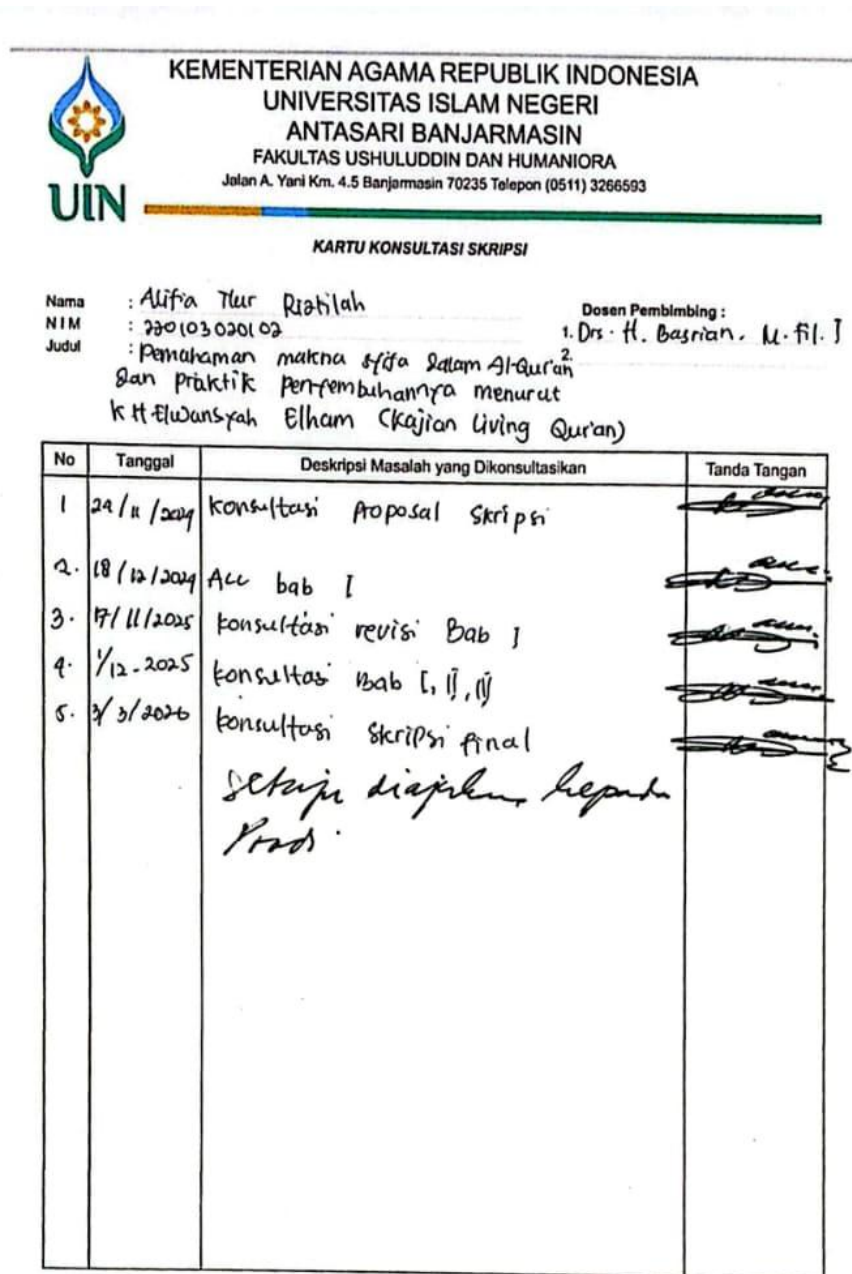 KEMENTERIAN AGAMA REPUBLIK INDONESIA
UNIVERSITAS ISLAM NEGERI
ANTASARI BANJARMASIN
FAKULTAS USHULUDDIN DAN HUMANIORA
Jalan A. Yani Km. 4.5 Banjarmasin 70235 Telepon (0511) 3266593
UIN
KARTU KONSULTASI SKRIPSI
Nama : Alifia Nur
NIM : 220103020102
Judul : Pemahaman makna syifa dalam Al-Qur'an
dan praktik penyembuhannya menurut
KH Elwansyah Elham (Kajian Living Qur'an)
Dosen Pembimbing :
1. Drs. H. Basrian. M.Fil.I
2.
No Tanggal Deskripsi Masalah yang Dikonsultasikan Tanda Tangan
1 /11/2024 Konsultasi Proposal Skripsi
2. 18/12/2024 Acc bab I
3. 17/11/2025 konsultasi revisi Bab I
4. 1/12-2025 konsultasi Bab I, II,
5. 3/3/2026 konsultasi Skripsi final
Setuju diajukan kepada
Prodi.